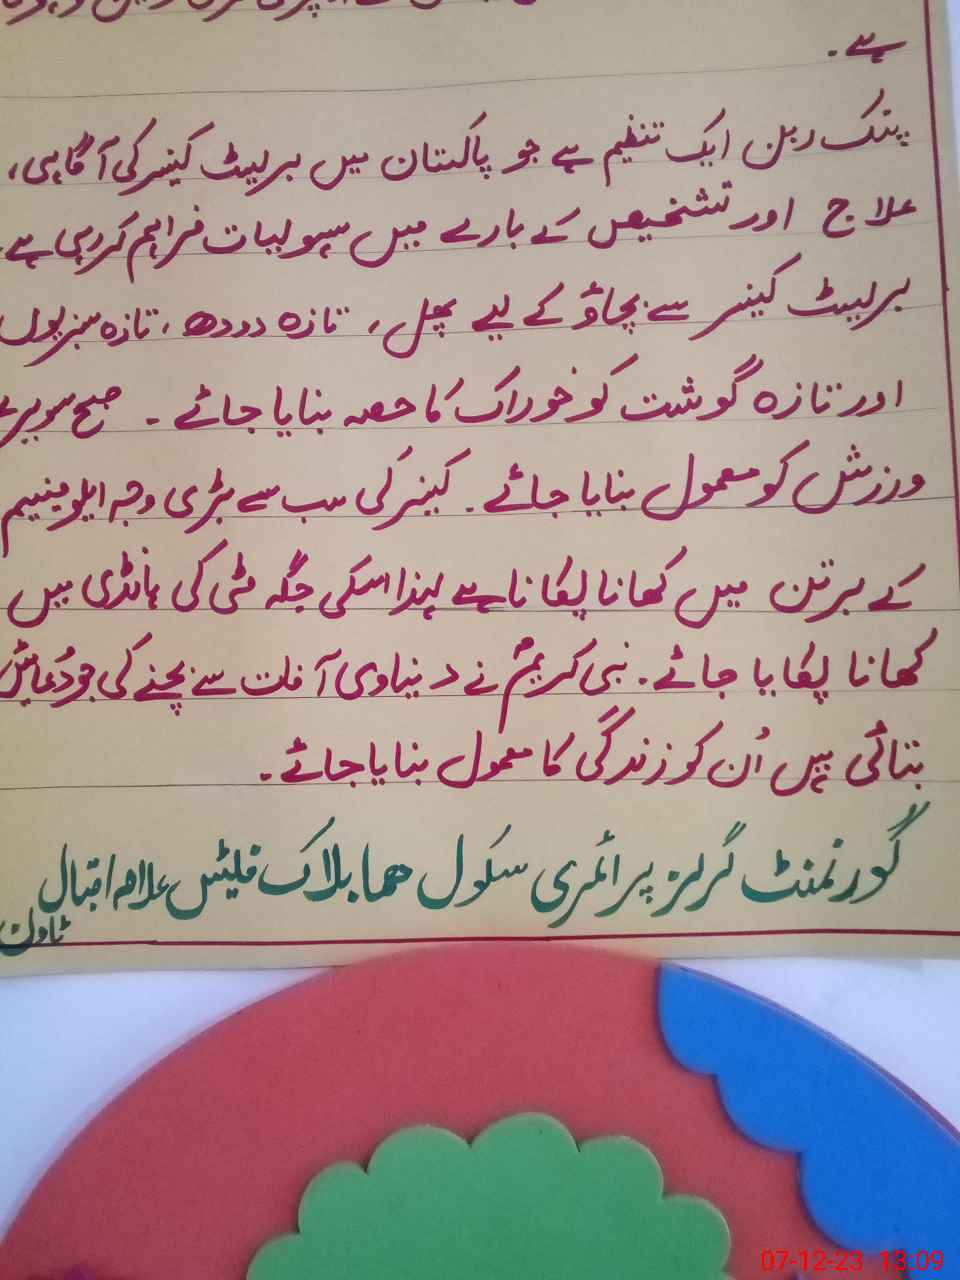 ہے۔
پنک ربن ایک تنظیم ہے جو پاکستان میں بریسٹ کینسر کی آگاہی،
علاج اور تشخیص کے بارے میں سہولیات فراہم کر رہی ہے
بریسٹ کینسر سے بچاؤ کے لیے پھل، تازہ دودھ، تازہ سبزیوں
اور تازہ گوشت کو خوراک کا حصہ بنایا جائے ۔ صبح سویرے
ورزش کو معمول بنایا جائے ۔ کینسر کی سب سے بڑی وجہ ایلومینیم
کے برتن میں کھانا پکانا ہے لہذا اسکی جگہ مٹی کی ہانڈی میں
کھانا پکایا جائے ۔ نبی کریمؐ نے دنیاوی آفات سے بچنے کی جو دُعائیں
بتائی ہیں اُن کو زندگی کا معمول بنایا جائے ۔
گورنمنٹ گرلز پرائمری سکول ھما بلاک فلیٹس علامہ اقبال
ٹاون
07-12-23 13:09